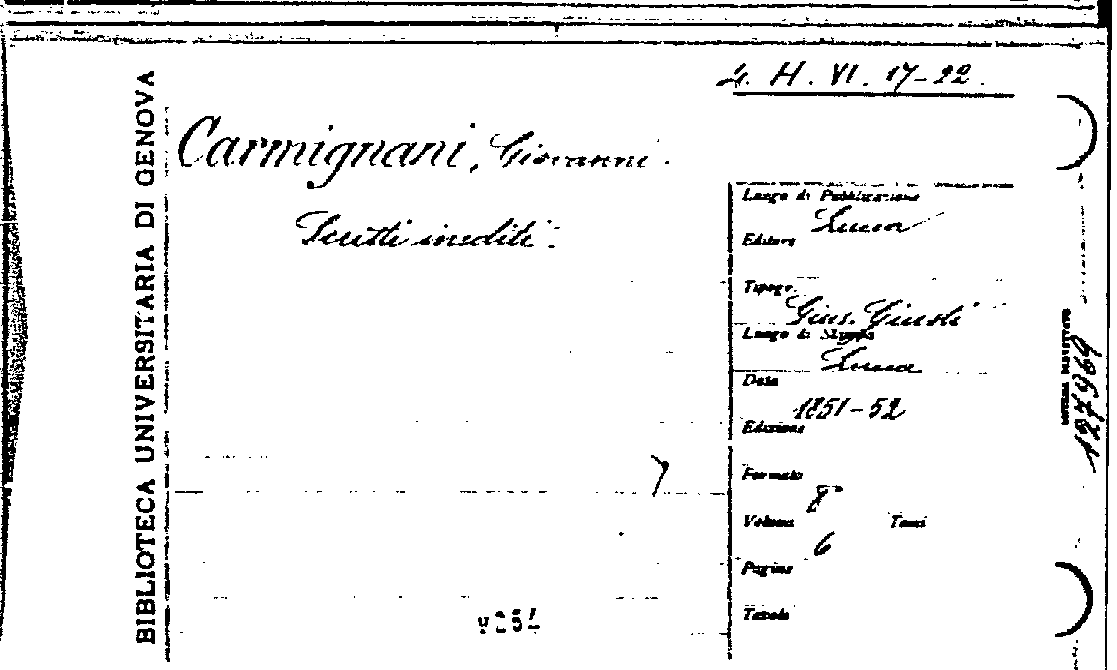 4. H. VI. 17-22.
BIBLIOTECA UNIVERSITARIA DI GENOVA
Carmignani, Giovanni.
Scritti inediti.
Luogo di Pubblicazione
Lucca
Editore
Tipogr.
Gius. Giusti
Luogo di Stampa
Lucca
Data
1851-52
Edizione
Formato
8°
Volume Tomi
6
Pagine
Tavole
127969